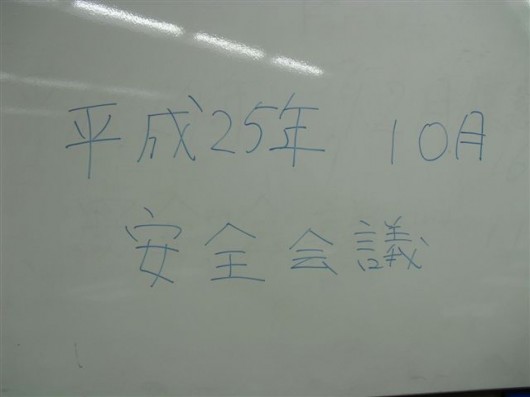 平成25年 10月
安全会議